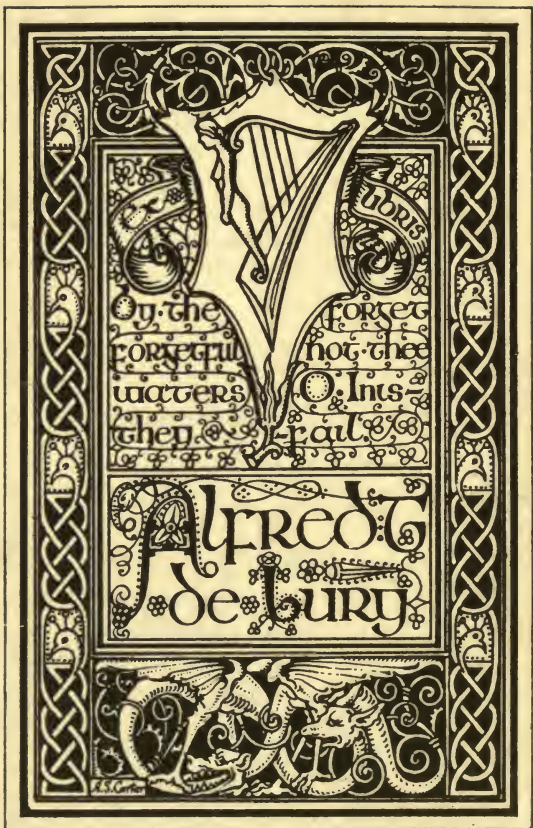 EX
LIBRIS
By·the
forgetful
waters
they
forget
not·thee
O·Inis-
-fail
Alfred:T
de·Lury
A.S. Carter